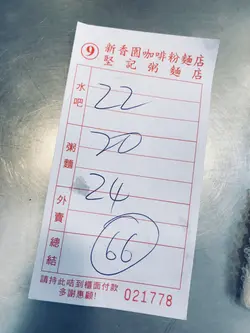 9 新香園咖啡粉麵店
堅記粥麵店
水吧 22
粥麵 20
24
外賣
總結 66
請持此咭到櫃面付款
多謝惠顧！ 021778